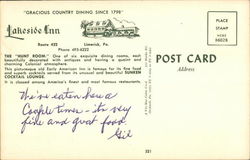 "GRACIOUS COUNTRY DINING SINCE 1798"
Lakeside Inn
Route 422 Limerick, Pa.
Phone 495-6222
THE "HUNT ROOM" One of six exquisite dining rooms, each
beautifully decorated with antiques and having a quaint and
charming Colonial atmosphere.
This picturesque old Early American Inn is famous for its fine food
and superb cocktails served from its unusual and beautiful SUNKEN
COCKTAIL LOUNGE.
It is classed among America's finest and most famous restaurants.
POST CARD
Address
We've eaten here a
Couple times - its very
fine and great food